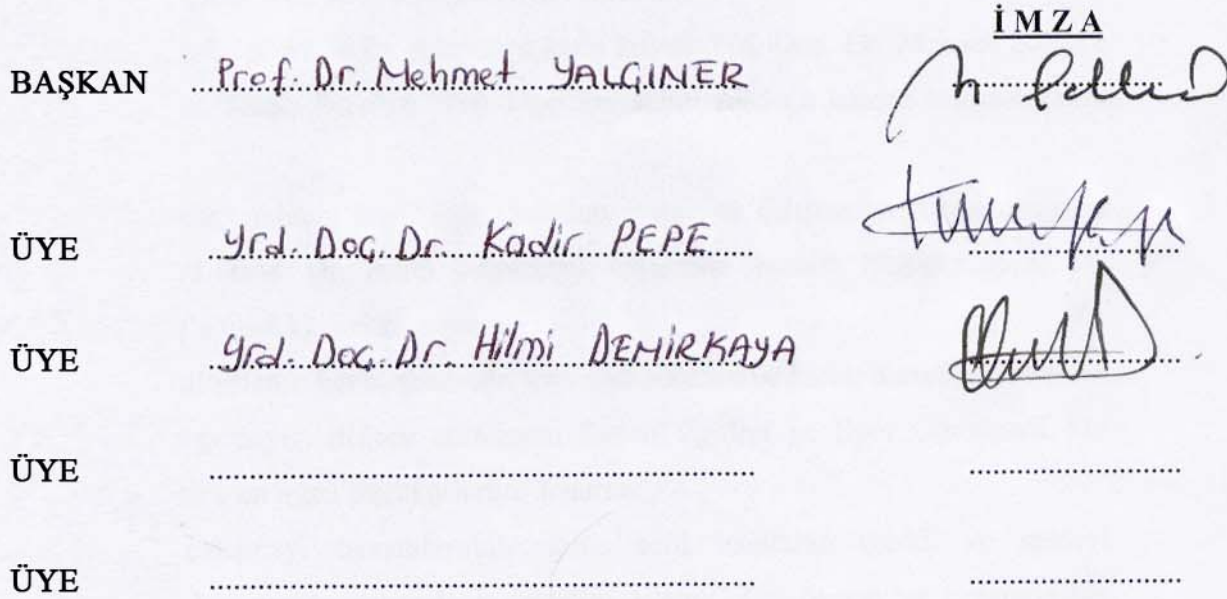 İMZA
BAŞKAN Prof. Dr. Mehmet YALGINER
ÜYE Yrd. Doç. Dr. Kadir PEPE
ÜYE Yrd. Doç. Dr. Hilmi DEMİRKAYA
ÜYE
ÜYE